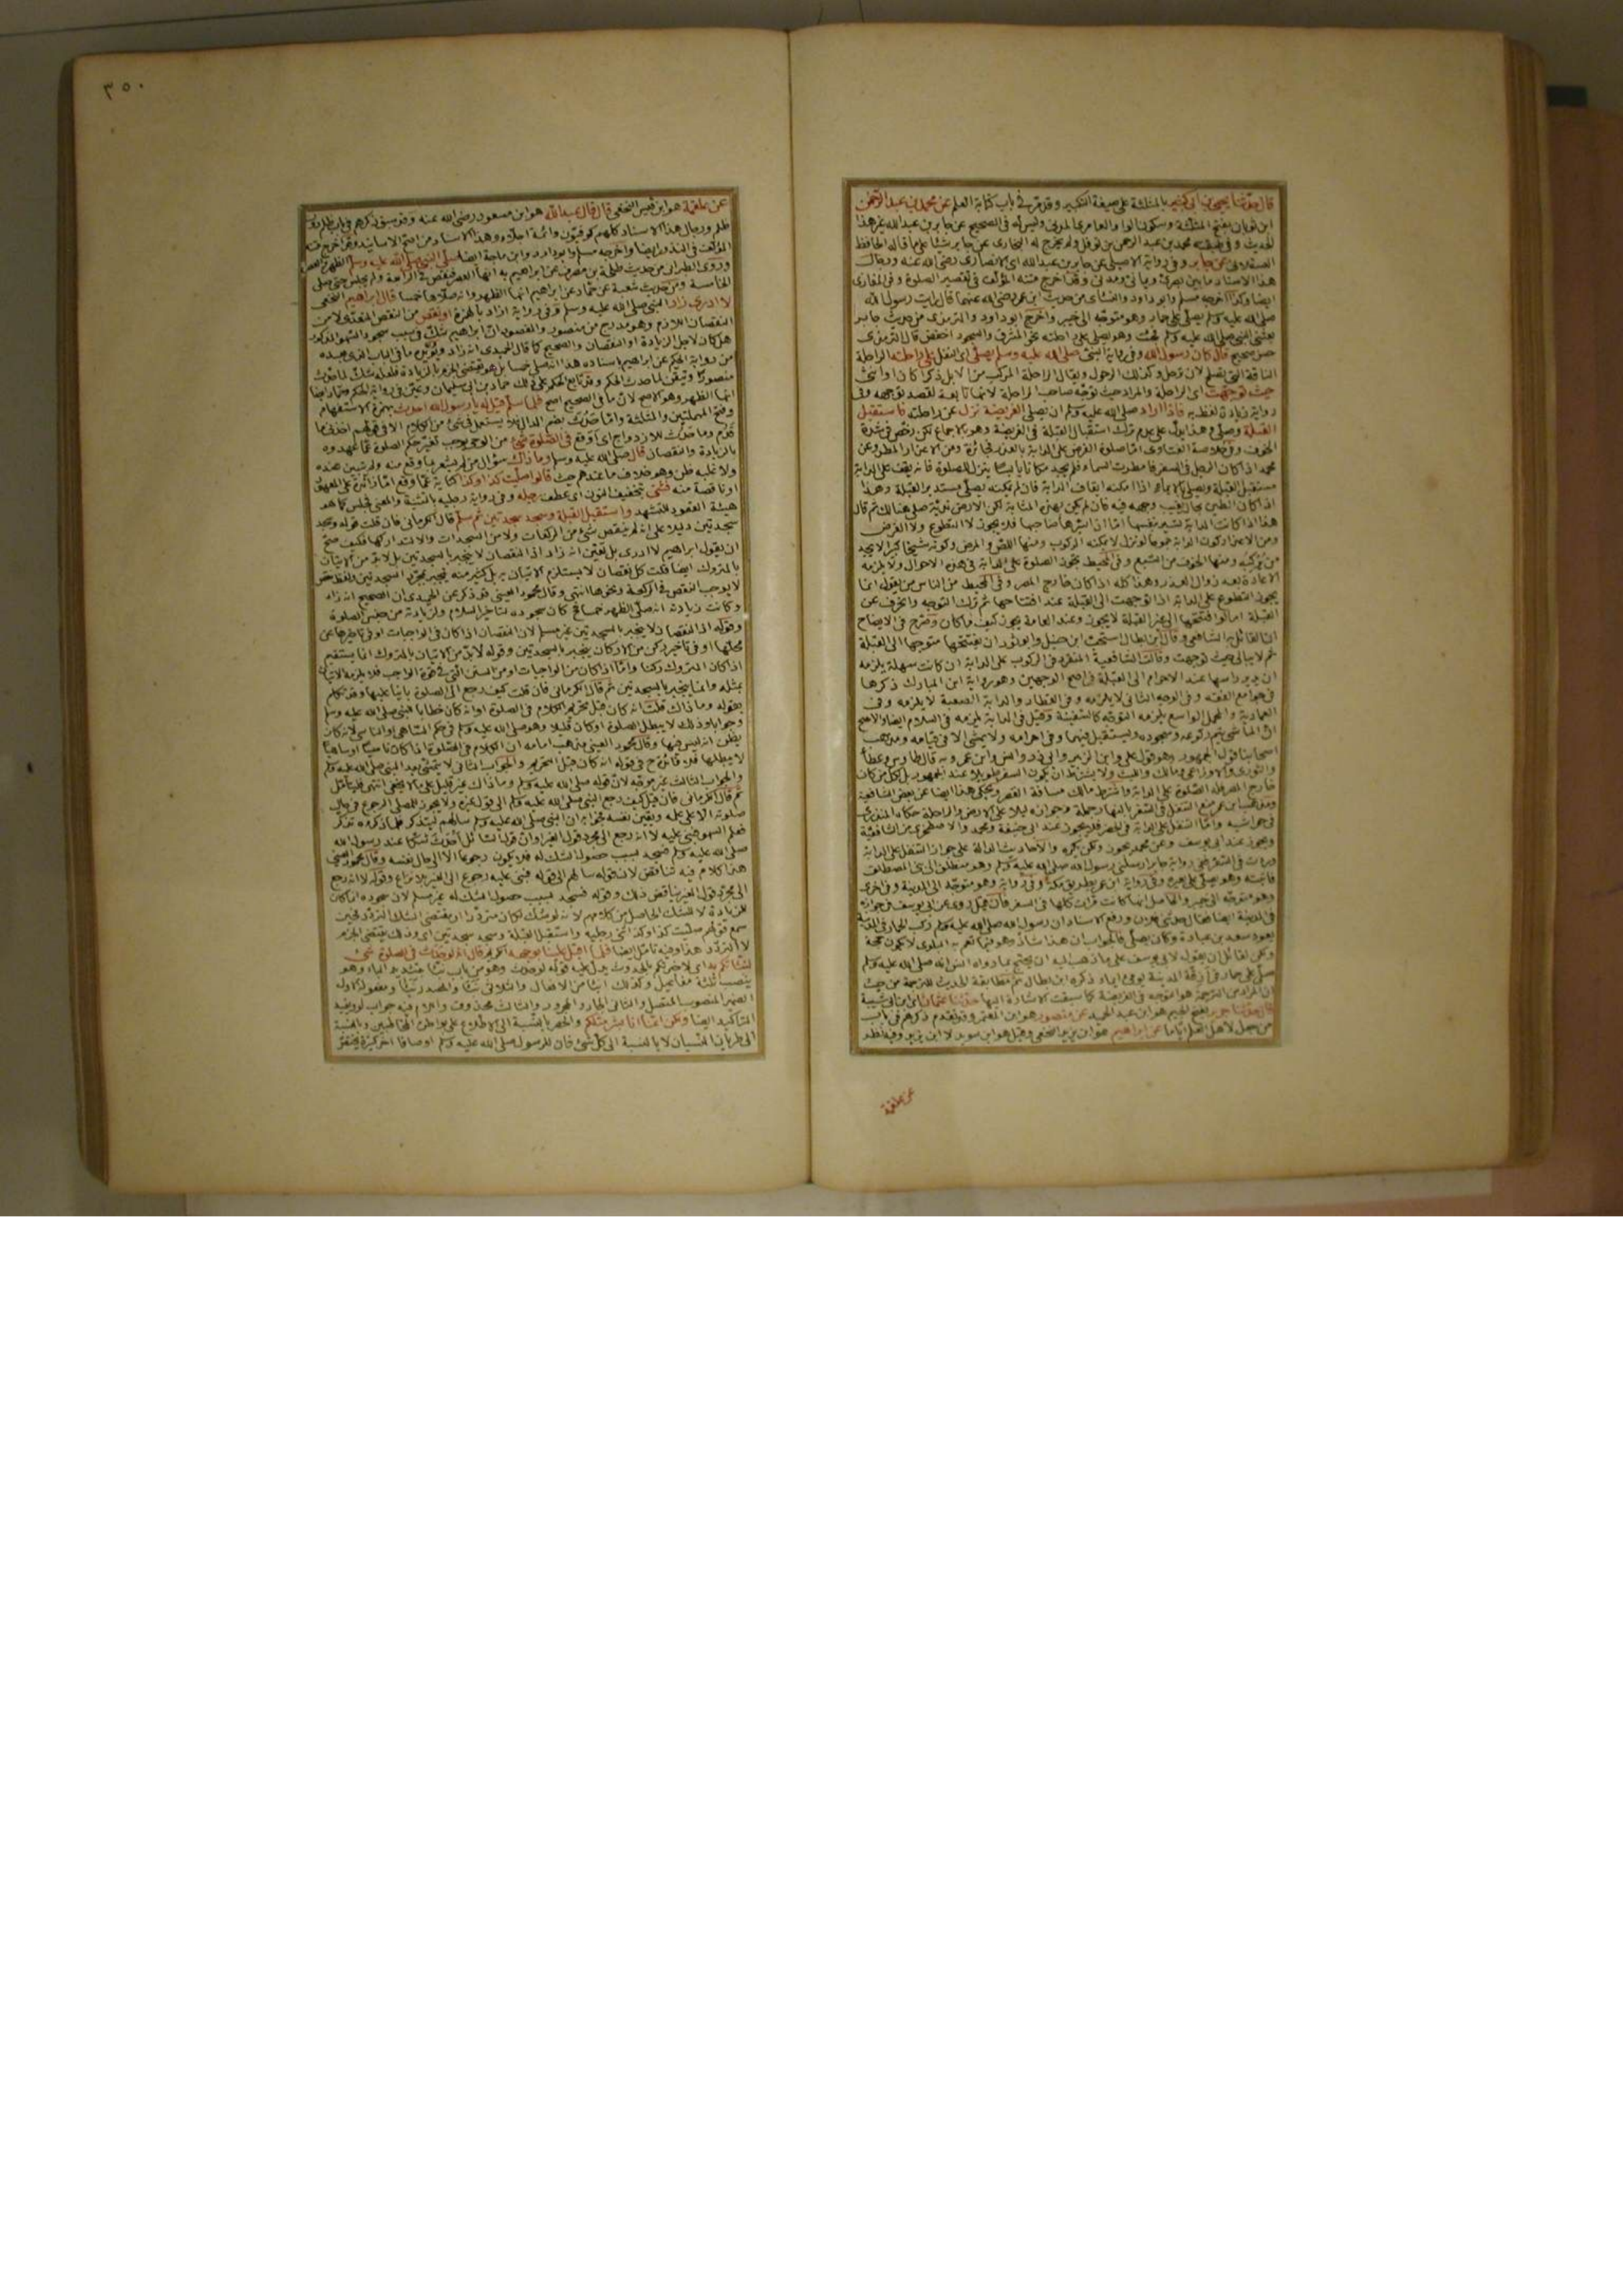 قال حدثنا يحيى بن ابى كثير بالمثلثة على صيغة التكبير وقد مر فى باب كتابة العلم عن محمد بن عبد الرحمن
ابن ثوبان بفتح المثلثة وسكون الواو العامرى المدنى وليس له فى الصحيح عن جابر بن عبد الله غير هذا
الحديث وفى طبقته محمد بن عبد الرحمن بن نوفل ولم يخرج له البخارى عن جابر شيئا على ما قاله الحافظ
العسقلانى عن جابر وفى رواية الاصيلى عن جابر بن عبد الله اى الانصارى رضى الله عنه ورجال
هذا الاسناد ما بين بصرى ويمانى ومدنى وقد اخرج متنه المؤلف فى تقصير الصلوة وفى المغازى
ايضا وكذا اخرجه مسلم وابو داود والنسائى من حديث ابن عمر رضى الله عنهما قال رايت رسول الله
صلى الله عليه وسلم يصلى على حمار وهو متوجه الى خيبر واخرج ابو داود والترمذى من حديث جابر
بعثنى النبى صلى الله عليه وسلم فجئت وهو يصلى على راحلته نحو المشرق والسجود اخفض قال الترمذى
حسن صحيح قال كان رسول الله وفى رواية النبى صلى الله عليه وسلم يصلى اى النفل على راحلته الراحلة
الناقة التى تصلح لان ترحل وكذلك الرحول ويقال الراحلة المركب من الابل ذكرا كان او انثى
حيث توجهت اى الراحلة والمراد حيث توجه صاحب الراحلة لانها تابعة لقصد توجهه وفى
رواية زيادة لفظ به فاذا اراد صلى الله عليه وسلم ان يصلى الفريضة نزل عن راحلته فاستقبل
القبلة وصلى وهذا يدل على عدم ترك استقبال القبلة فى الفريضة وهو بالاجماع لكن رخص فى شدة
الخوف وفى خلاصة الفتاوى اما صلوة الفرض على الدابة بالعذر فجائزة ومن الاعذار المطر وعن
محمد اذا كان الرجل فى السفر فامطرت السماء فلم يجد مكانا يابسا ينزل للصلوة فانه يقف على الدابة
مستقبل القبلة ويصلى بالايماء اذا امكنه ايقاف الدابة فان لم يمكنه يصلى مستدبر القبلة وهذا
اذا كان الطين بحال يغيب وجهه فيه فان لم يكن بهذه المثابة لكن الارض ندية صلى هنالك ثم قال
هذا اذا كانت الدابة تسير بنفسها اما اذا سيرها صاحبها فلا يجوز لا التطوع ولا الفرض
ومن الاعذار كون الدابة جموحا لو نزل لا يمكنه الركوب ومنها اللص والمرض وكونه شيخا كبيرا لا يجد
من يركبه ومنها الخوف من السبع وفى المحيط يجوز الصلوة على الدابة فى هذه الاحوال ولا يلزمه
الاعادة بعد زوال العذر وهذا كله اذا كان خارج المصر وفى المحيط من الناس من يقول انما
يجوز التطوع على الدابة اذا توجهت الى القبلة عند افتتاحها ثم ترك التوجه وانحرف عن
القبلة اما لو افتتحها الى غير القبلة لا يجوز وعند العامة يجوز كيف ما كان وصرح فى الايضاح
ان القائل به الشافعى وقال ابن بطال استحب ابن حنبل وابو ثور ان يفتتحها متوجها الى القبلة
ثم لا يبالى حيث توجهت وقالت الشافعية المنفرد فى الركوب على الدابة ان كانت سهلة يلزمه
ان يدير راسها عند الاحرام الى القبلة فى اصح الوجهين وهو رواية ابن المبارك ذكرها
فى جوامع الفقه وفى الوجه الثانى لا يلزمه وفى القطار والدابة الصعبة لا يلزمه وفى
العمارية والمحمل الواسع يلزمه التوجه كالسفينة وقيل فى الدابة يلزمه فى السلام ايضا والاصح
ان الماشى يتم ركوعه وسجوده ويستقبل فيهما وفى احرامه ولا يمشى الا فى قيامه ومذهب
اصحابنا قول الجمهور وهو قول على وابن الزبير وابى ذر وانس وابن عمر وبه قال طاوس وعطاء
والثورى والاوزاعى ومالك والليث ولا يشترط ان يكون السفر طويلا عند الجمهور بل لكل من كان
خارج المصر فله الصلوة على الدابة واشترط مالك مسافة القصر ويحكى هذا ايضا عن بعض الشافعية
ومذهب ابن عمر منع التنفل فى السفر بالنهار جملة وجوازه ليلا على الارض والراحلة حكاه المنذرى
فى حواشيه واما التنفل على الدابة فى المصر فلا يجوز عند ابى حنيفة ومحمد والاصطخرى من الشافعية
ويجوز عند ابى يوسف وعن محمد يجوز ولكن يكره والاحاديث الدالة على جواز التنفل على الدابة
وردت فى السفر ففى رواية جابر ارسلنى رسول الله صلى الله عليه وسلم وهو منطلق الى بنى المصطلق
فاتيته وهو يصلى على بعيره وفى رواية ابن عمر بطريق مكة وفى رواية وهو متوجه الى المدينة وفى اخرى
وهو متوجه الى خيبر والحاصل انها كانت مرات كلها فى السفر فان قيل روى عن ابى يوسف فى جوازه
فى المدينة ايضا فقال حدثنى فلان ورفع الاسناد ان رسول الله صلى الله عليه وسلم ركب الحمار فى المدينة
يعود سعد بن عبادة وكان يصلى فالجواب ان هذا شاذ وهو فيما تعم به البلوى لا يكون حجة
ولكن لقائل ان يقول لابى يوسف على ما ذهب اليه ان يحتج بما رواه انس انه صلى الله عليه وسلم
صلى على حمار فى ازقة المدينة يومى ايماء ذكره ابن بطال ثم مطابقة الحديث للترجمة من حيث
ان المراد من الترجمة هو التوجه فى الفريضة كما سبقت الاشارة اليها حدثنا عثمان ابن ابى شيبة
قال حدثنا جرير بفتح الجيم هو ابن عبد الحميد عن منصور هو ابن المعتمر وقد تقدم ذكرهم فى باب
من جعل لاهل العلم اياما عن ابراهيم هو ابن يزيد النخعى وقيل هو ابن سويد لا ابن يزيد وفيه نظر
عن علقمة
٣٥٠
عن علقمة هو ابن قيس النخعى قال قال عبد الله هو ابن مسعود رضى الله عنه وقد سبق ذكرهم فى باب ظلم دون
ظلم ورجال هذا الاسناد كلهم كوفيون وائمة اجلاء وهذا الاسناد من اصح الاسانيد وقد اخرج متنه
المؤلف فى النذور ايضا واخرجه مسلم وابو داود وابن ماجة ايضا صلى النبى صلى الله عليه وسلم الظهر او العصر
وروى الطبرانى من حديث طلحة بن مصرف عن ابراهيم به انها العصر فنقص فى الرابعة ولم يجلس حتى صلى
الخامسة ومن حديث شعبة عن حماد عن ابراهيم انها الظهر وانه صلاها خمسا قال ابراهيم النخعى
لا ادرى زاد النبى صلى الله عليه وسلم وفى رواية ازاد بالهمزة او نقص من النقص المتعدى لا من
النقصان اللازم وهو مدرج من منصور والمقصود ان ابراهيم شك فى سبب سجود السهو المذكور
هل كان لاجل الزيادة او النقصان والصحيح كما قال الحميدى انه زاد ويؤيده ما فى الباب الذى بعده
من رواية الحكم عن ابراهيم باسناده هذا انه صلى خمسا بل هو يقتضى الجزم بالزيادة فلعله شك لما حدث
منصورا وتيقن لما حدث الحكم وقد تابع الحكم على ذلك حماد بن ابى سليمان وعين فى رواية الحكم وحماد ايضا
انها الظهر وهو الاصح لان ما فى الصحيح اصح فلما سلم قيل له يا رسول الله احدث بهمزة الاستفهام
وفتح المهملتين والمثلثة واما حدث بضم الدال فلا يستعمل فى شئ من الكلام الا فى قولهم اخذنى ما
قدم وما حدث للازدواج اى اوقع فى الصلوة شئ من الوحى يوجب تغيير حكم الصلوة عما عهدوه
بالزيادة والنقصان قال صلى الله عليه وسلم وما ذاك سؤال من لم يشعر بما وقع منه ولم يتبين عنده
ولا غلبه ظن وهو خلاف ما عندهم حيث قالوا صليت كذا وكذا كناية عما وقع اما زائدة على المعهود
او ناقصة منه فثنى بتخفيف النون اى عطف رجله وفى رواية رجليه بالتثنية والمعنى فجلس كما هو
هيئة القعود للتشهد واستقبل القبلة وسجد سجدتين ثم سلم قال الكرمانى فان قلت قوله وسجد
سجدتين دليل على انه لم ينقص شئ من الركعات ولا من السجدات والا لتداركها فكيف صح
ان يقول ابراهيم لا ادرى بل تعين انه زاد اذ النقصان لا ينجبر بالسجدتين بل لا بد من الاتيان
بالمتروك ايضا قلت كل نقصان لا يستلزم الاتيان به بل كثير منه ينجبر بمجرد السجدتين ولفظ نقص
لا يوجب النقص فى الركعة ونحوها انتهى وقال محمود العينى قد ذكر عن الحميدى ان الصحيح انه زاد
وكانت زيادته انه صلى الظهر خمسا فح كان سجوده لتاخير السلام ولزيادته من جنس الصلوة
وقوله اذ النقصان لا ينجبر بالسجدتين غير مسلم لان النقصان اذا كان فى الواجبات او فى تاخيرها عن
محلها او فى تاخير ركن من الاركان ينجبر بالسجدتين وقوله لا بد من الاتيان بالمتروك انما يستقيم
اذا كان المتروك ركنا واما اذا كان من الواجبات او من السنن التى فى قوة الواجب فلا يلزمه الاتيان
بمثله وانما ينجبر بالسجدتين ثم قال الكرمانى فان قلت كيف رجع الى الصلوة بانيا عليها وقد تكلم
بقوله وما ذاك قلت انه كان قبل تحريم الكلام فى الصلوة او انه كان خطابا للنبى صلى الله عليه وسلم
وجوابا وذلك لا يبطل الصلوة او كان قليلا وهو صلى الله عليه وسلم فى حكم الساهى او الناسى لانه كان
يظن انه ليس فيها وقال محمود العينى مذهب امامه ان الكلام فى الصلوة اذا كان ناسيا او ساهيا
لا يبطلها فلا فائدة ح فى قوله انه كان قبل التحريم والجواب الثانى لا يتمشى بعد النبى صلى الله عليه وسلم
والجواب الثالث غير موجه لان قوله صلى الله عليه وسلم وما ذاك غير قليل على ما لا يخفى انتهى فليتامل
ثم قال الكرمانى فان قيل كيف رجع النبى صلى الله عليه وسلم الى قول غيره ولا يجوز للمصلى الرجوع فى حال
صلوته الا على علمه ويقين نفسه فجوابه ان النبى صلى الله عليه وسلم سالهم ليتذكر فلما ذكروه تذكر
فعلم السهو فبنى عليه لا انه رجع الى مجرد قول الغير او ان قول السائل احدث شكا عند رسول الله
صلى الله عليه وسلم فسجد لسبب حصول الشك له فلا يكون رجوعا الا الى حال نفسه وقال محمود العينى
هذا كلام فيه تناقض لان قوله سالهم الى قوله فبنى عليه رجوع الى الغير بلا نزاع وقوله لا انه رجع
الى مجرد قول الغير يناقض ذلك وقوله فسجد لسبب حصول الشك له غير مسلم لان سجوده انما كان
للزيادة لا للشك الحاصل من كلامهم لانه لو شك لكان مترددا اذ مقتضى الشك التردد فحين
سمع قولهم صليت كذا وكذا ثنى رجليه واستقبل القبلة وسجد سجدتين اى وذلك يقتضى الجزم
لا التردد هذا وفيه تامل ايضا فلما اقبل علينا بوجهه الكريم قال انه لو حدث فى الصلوة شئ
لنباتكم به اى لاخبرتكم بالحدوث يدل عليه قوله لو حدث وهو من باب نبا بتشديد الباء وهو
ينصب ثلثة مفاعيل وكذلك انبا من الافعال والثلاثى نبا والمصدر نبأ ومفعوله الاول
الضمير المنصوب المتصل والثانى الجار والمجرور والثالث محذوف واللام فيه جواب لو ويفيد
التاكيد ايضا ولكن انما انا بشر مثلكم والحصر بالنسبة الى الاطلاع على بواطن المخاطبين وبالنسبة
الى طريان النسيان لا بالنسبة الى كل شئ فان للرسول صلى الله عليه وسلم اوصافا اخر كثيرة